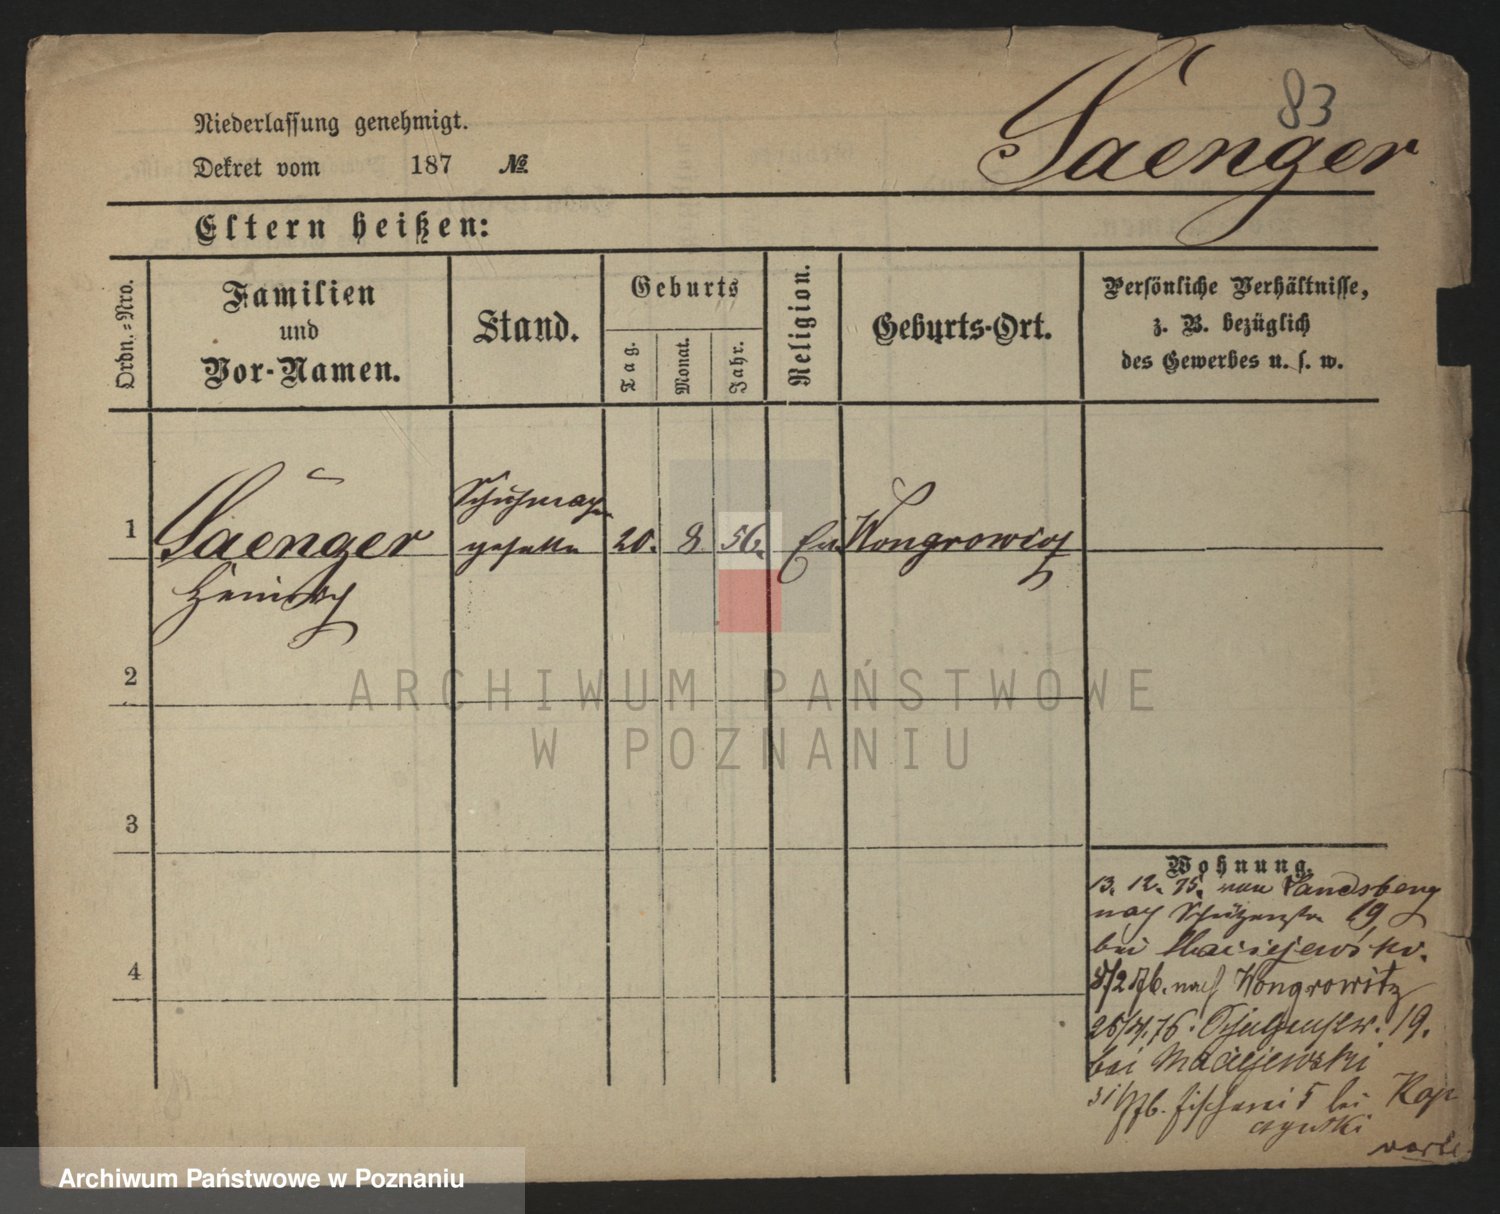 83
Saenger
Niederlassung genehmigt.
Dekret vom 187 №
Eltern heißen:
Ordn.=Nro.
Familien
und
Vor-Namen.
Stand.
Geburts
Tag.
Monat.
Jahr.
Religion.
Geburts-Ort.
Persönliche Verhältnisse,
z. B. bezüglich
des Gewerbes u. s. w.
1
Saenger
Heinrich
Schuhmach
geselle
20.
8
56.
Ev.
Wongrowicz
2
3
4
Wohnung.
13. 12. 75. von Landsberg
nach Schützenstr 19
bei Maciejewski.
8/2 76. nach Wongrowitz
26/4. 76. 19.
bei Maciejewski
76. Fischerei 5 bei Kap
czynski
ARCHIWUM PAŃSTWOWE
W POZNANIU
Archiwum Państwowe w Poznaniu